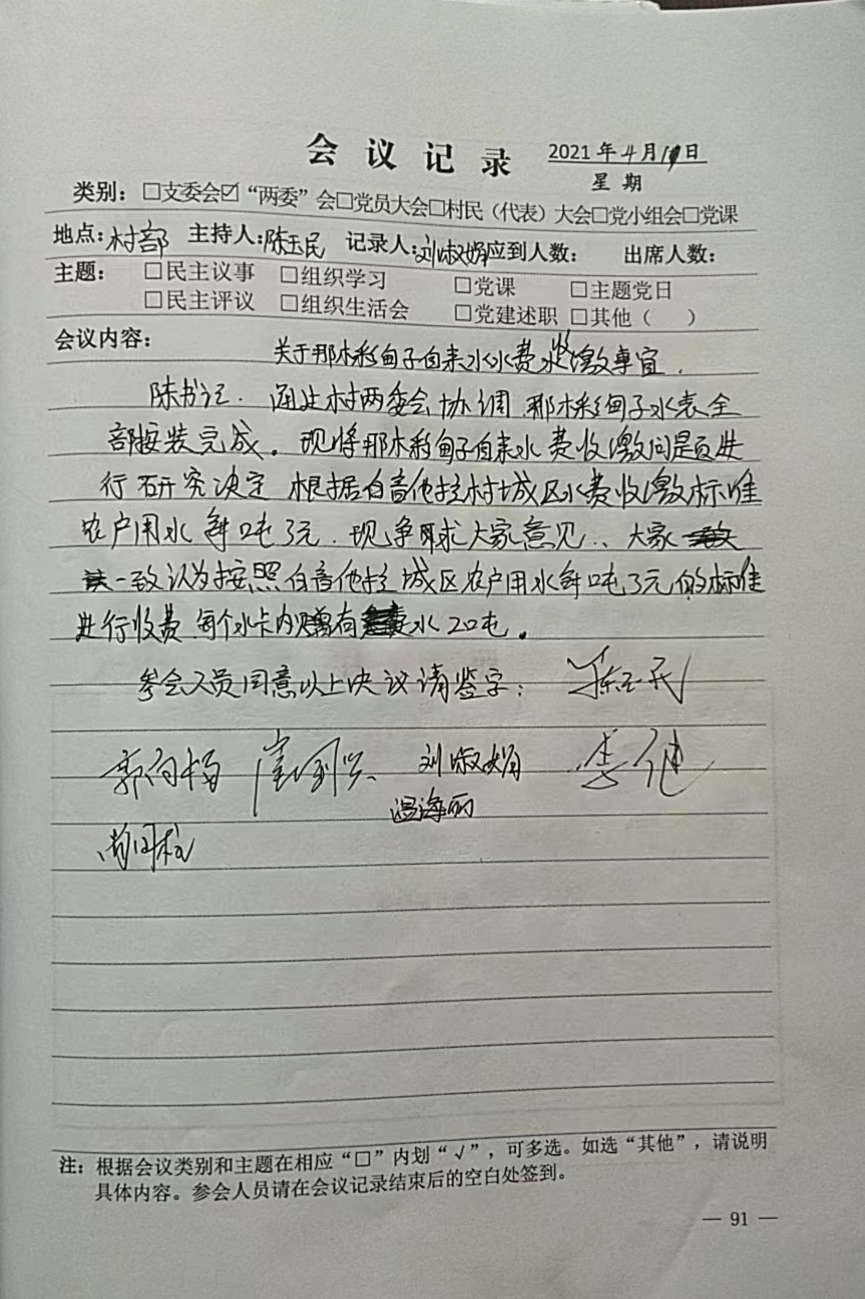 会议记录 2021年4月19日
星期
类别：□支委会☑“两委”会□党员大会□村民（代表）大会□党小组会□党课
地点：村部 主持人：陈玉民 记录人：刘淑娟 应到人数： 出席人数：
主题： □民主议事 □组织学习 □党课 □主题党日
□民主评议 □组织生活会 □党建述职 □其他（ ）
会议内容： 关于那木彩甸子自来水水费收缴事宜.
陈书记. 通过村两委会协调 那木彩甸子水表全
部按装完成。现将那木彩甸子自来水费收缴问题进
行研究决定 根据白音他拉村城区水费收缴标准
农户用水每吨3元. 现争求大家意见.. 大家
一致认为按照白音他拉城区农户用水每吨3元的标准
进行收费 每个水卡内赠有水20吨。
参会人员同意以上决议请签字： 陈玉民
郭向梅 刘淑娟 李
温海丽
注：根据会议类别和主题在相应“□”内划“√”，可多选。如选“其他”，请说明
具体内容。参会人员请在会议记录结束后的空白处签到。
— 91 —